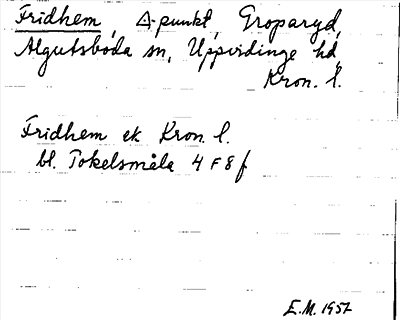 Fridhem, Δ-punkt, Groparyd,
Algutsboda sn, Uppvidinge hd,
Kron. l.
Fridhem ek Kron. l.
bl. Tokelsmåla 4 F 8 f
E.M. 1957